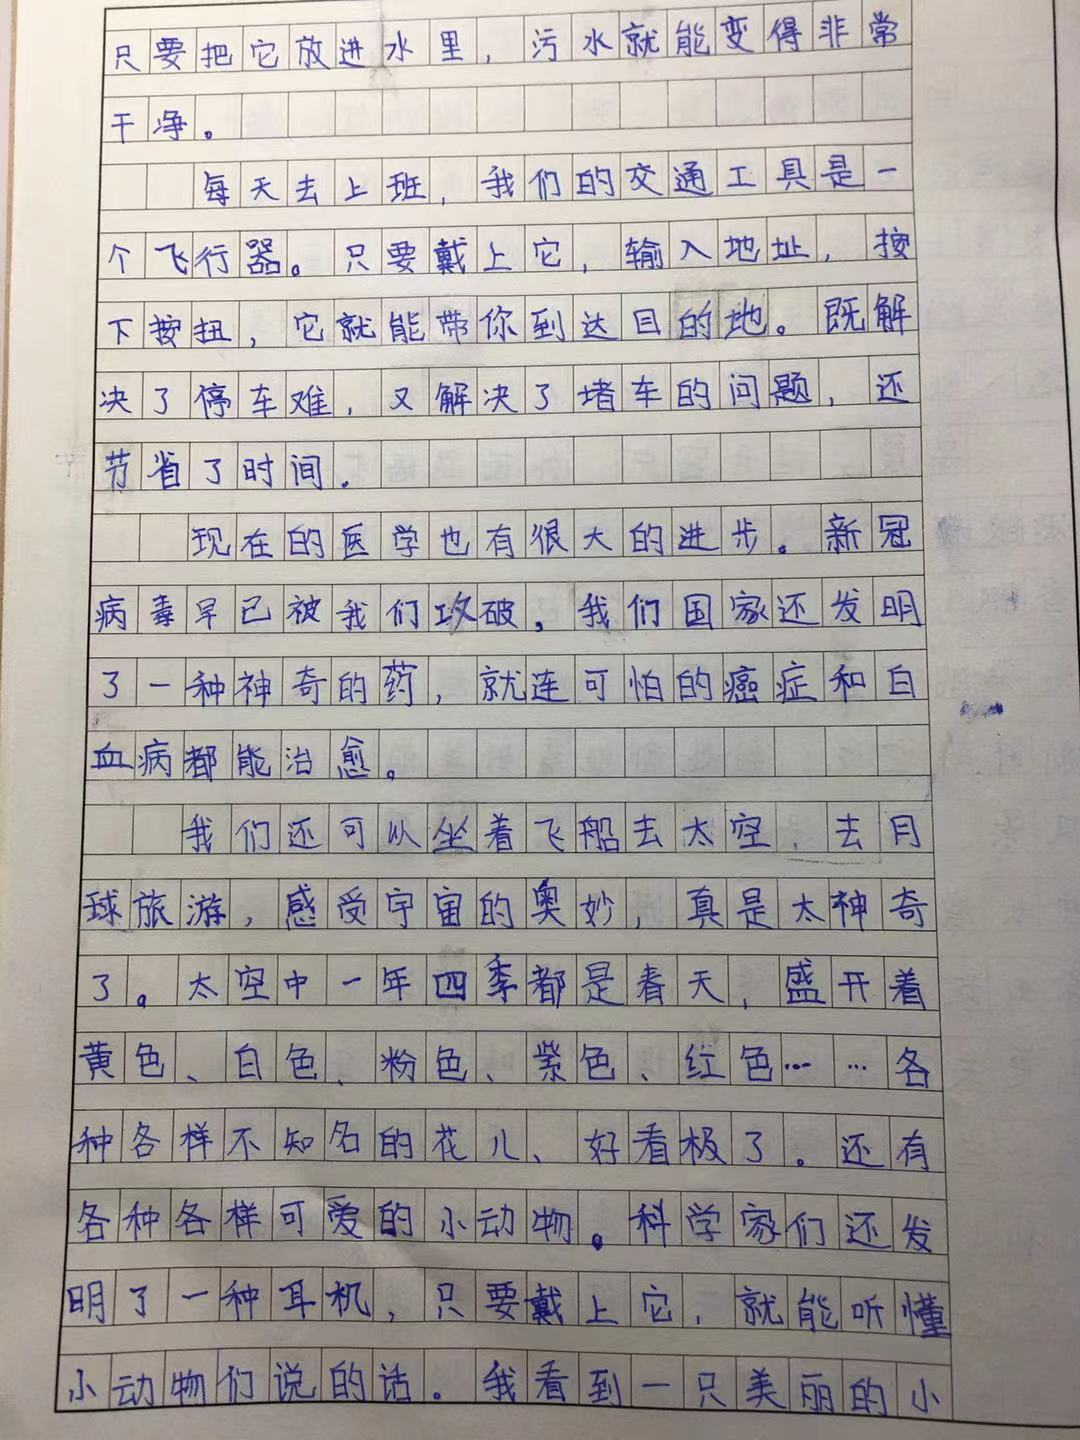 只要把它放进水里，污水就能变得非常
干净。
每天去上班，我们的交通工具是一
个飞行器。只要戴上它，输入地址，按
下按扭，它就能带你到达目的地。既解
决了停车难，又解决了堵车的问题，还
节省了时间.
现在的医学也有很大的进步。新冠
病毒早已被我们攻破。我们国家还发明
了一种神奇的药，就连可怕的癌症和白
血病都能治愈。
我们还可以坐着飞船去太空，去月
球旅游，感受宇宙的奥妙，真是太神奇
了。太空中一年四季都是春天，盛开着
黄色、白色、粉色、紫色、红色……各
种各样不知名的花儿、好看极了。还有
各种各样可爱的小动物。科学家们还发
明了一种耳机，只要戴上它，就能听懂
小动物们说的话。我看到一只美丽的小